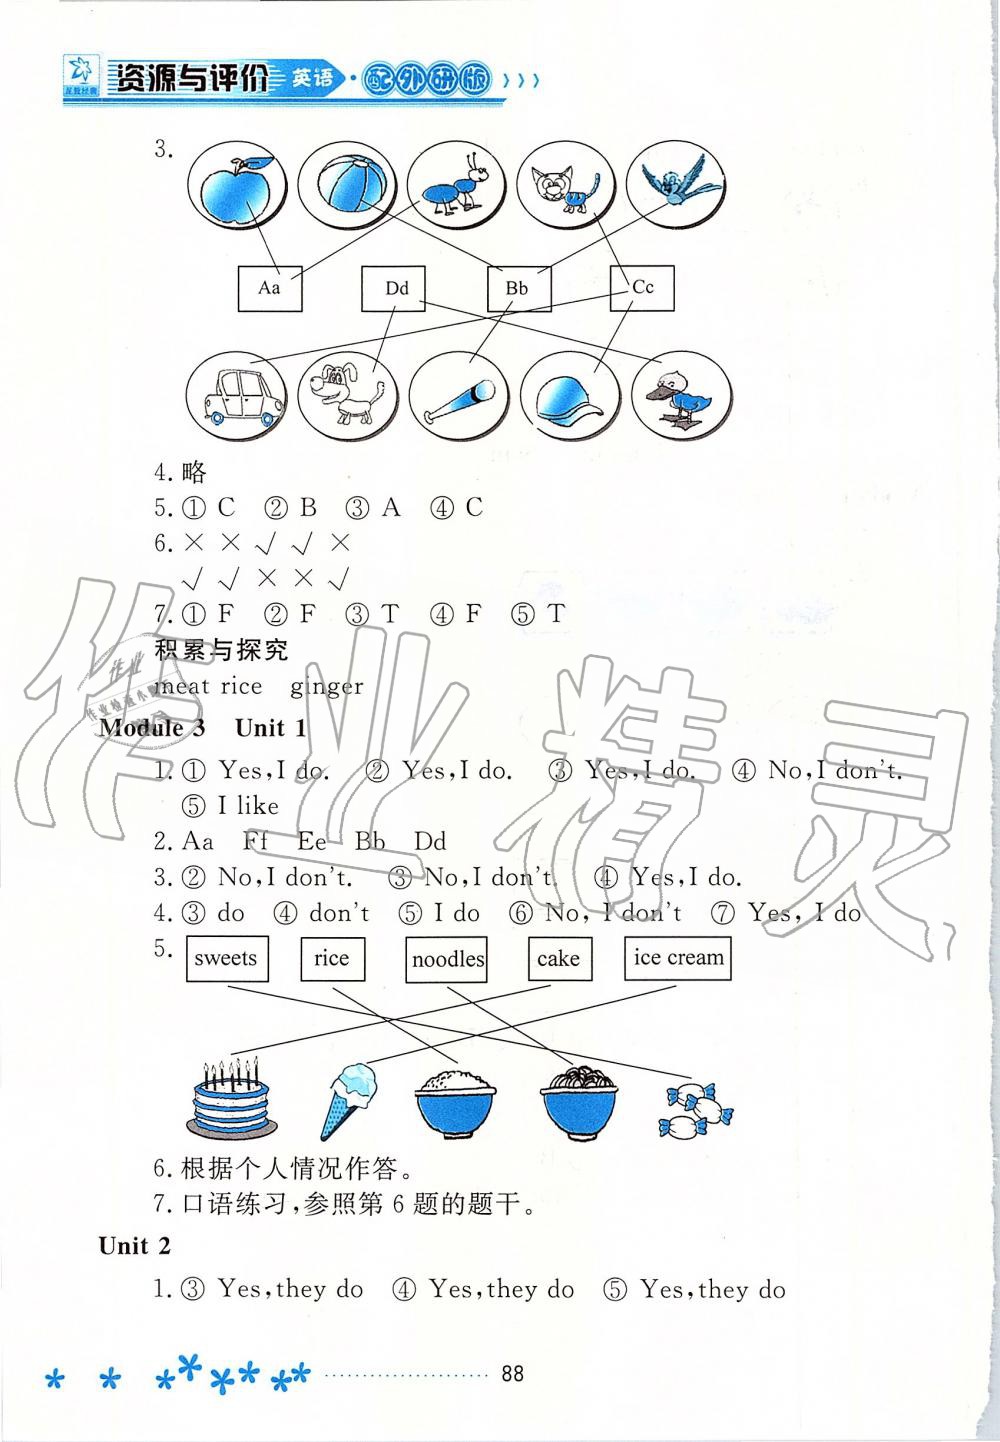 资源与评价 英语·配外研版 》》》
3.
Aa Dd Bb Cc
4. 略
5. ① C ② B ③ A ④ C
6. × × √ √ ×
√ √ × × √
7. ① F ② F ③ T ④ F ⑤ T
积累与探究
meat rice ginger
Module 3 Unit 1
1. ① Yes,I do. ② Yes,I do. ③ Yes,I do. ④ No,I don't.
⑤ I like
2. Aa Ff Ee Bb Dd
3. ② No,I don't. ③ No,I don't. ④ Yes,I do.
4. ③ do ④ don't ⑤ I do ⑥ No, I don't ⑦ Yes, I do
5.
sweets rice noodles cake ice cream
6. 根据个人情况作答。
7. 口语练习,参照第 6 题的题干。
Unit 2
1. ③ Yes,they do ④ Yes,they do ⑤ Yes,they do
88
作业精灵